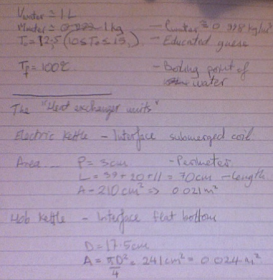 Vwater = 1L
Mwater = 1kg
T = 12.5 (10≤T≤15) - Educated guess
Tf = 100°C - Boiling point of water
The "Heat exchanger units"
Electric Kettle - Interface submerged coil
Area - P = 3cm - Perimeter
L = 70cm - Length
A = 210cm² ⇒ 0.021m²
Hob Kettle - Interface flat bottom
D = 17.5cm
A = πD²/4 = 241cm² = 0.024m²